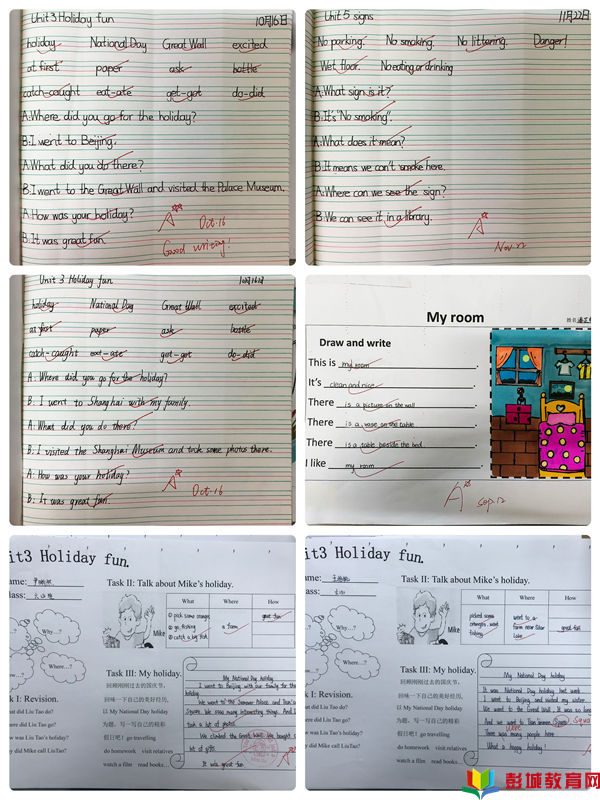 Unit 3 Holiday fun 10月16日
holiday National Day Great Wall excited
at first paper ask bottle
catch-caught eat-ate get-got do-did
A: Where did you go for the holiday?
B: I went to Beijing.
A: What did you do there?
B: I went to the Great Wall and visited the Palace Museum.
A: How was your holiday?
B: It was great fun.
A Oct.16
Good writing!
Unit 5 signs 11月22日
No parking. No smoking. No littering. Danger!
Wet floor. No eating or drinking
A: What sign is it?
B: It's "No smoking".
A: What does it mean?
B: It means we can't smoke here.
A: Where can we see the sign?
B: We can see it in a library.
A Nov.22
Unit 3 Holiday fun. 10月16日
holiday National Day Great Wall excited
at first paper ask bottle
catch-caught eat-ate get-got do-did
A: Where did you go for the holiday?
B: I went to Shanghai with my family.
A: What did you do there?
B: I visited the Shanghai Museum and took some photos there.
A: How was your holiday?
B: It was great fun.
A Oct.16
My room
Draw and write
This is my room.
It's clean and nice.
There is a picture on the wall.
There is a vase on the table.
There is a table beside the bed.
I like my room.
A Sep.12
it3 Holiday fun.
ame:
lass:
Task II: Talk about Mike's holiday.
What Where How
① pick some oranges
② go fishing
③ catch a big fish
a farm
great fun
Mike
Why...?
What...?
How...?
Where...?
Task III: My holiday.
回顾刚刚过去的国庆节，
回味一下自己的美好经历，
以 My National Day holiday
为题，写一写自己的精彩
假日吧！go travelling
do homework visit relatives
watch a film read books...
k I: Revision.
hat did Liu Tao do?
here did Liu Tao go?
ow was Liu Tao's holiday?
hy did Mike call LiuTao?
My National Day holiday
I went to Beijing with our family for the
We went to the Summer Palace and Tian'an
Square. We saw many interesting things. And I
took a lot of photos.
We climbed the Great Wall. We bought
lot of gifts.
It was great fun.
it3 Holiday fun.
ame:
lass:
Task II: Talk about Mike's holiday.
What Where How
picked some oranges, went fishing
went to a farm near Star Lake
great fun
Mike
Why...?
What...?
How...?
Where...?
Task III: My holiday.
回顾刚刚过去的国庆节，
回味一下自己的美好经历，
以 My National Day holiday
为题，写一写自己的精彩
假日吧！go travelling
do homework visit relatives
watch a film read books...
k I: Revision.
hat did Liu Tao do?
here did Liu Tao go?
ow was Liu Tao's holiday?
hy did Mike call LiuTao?
My National Day holiday
It was National Day holiday last week.
I went to Beijing and visited my sister.
We went to the Great Wall. It was so
And we went to Tian'anmen Square
There were many people here.
What a happy holiday!
彭城教育网